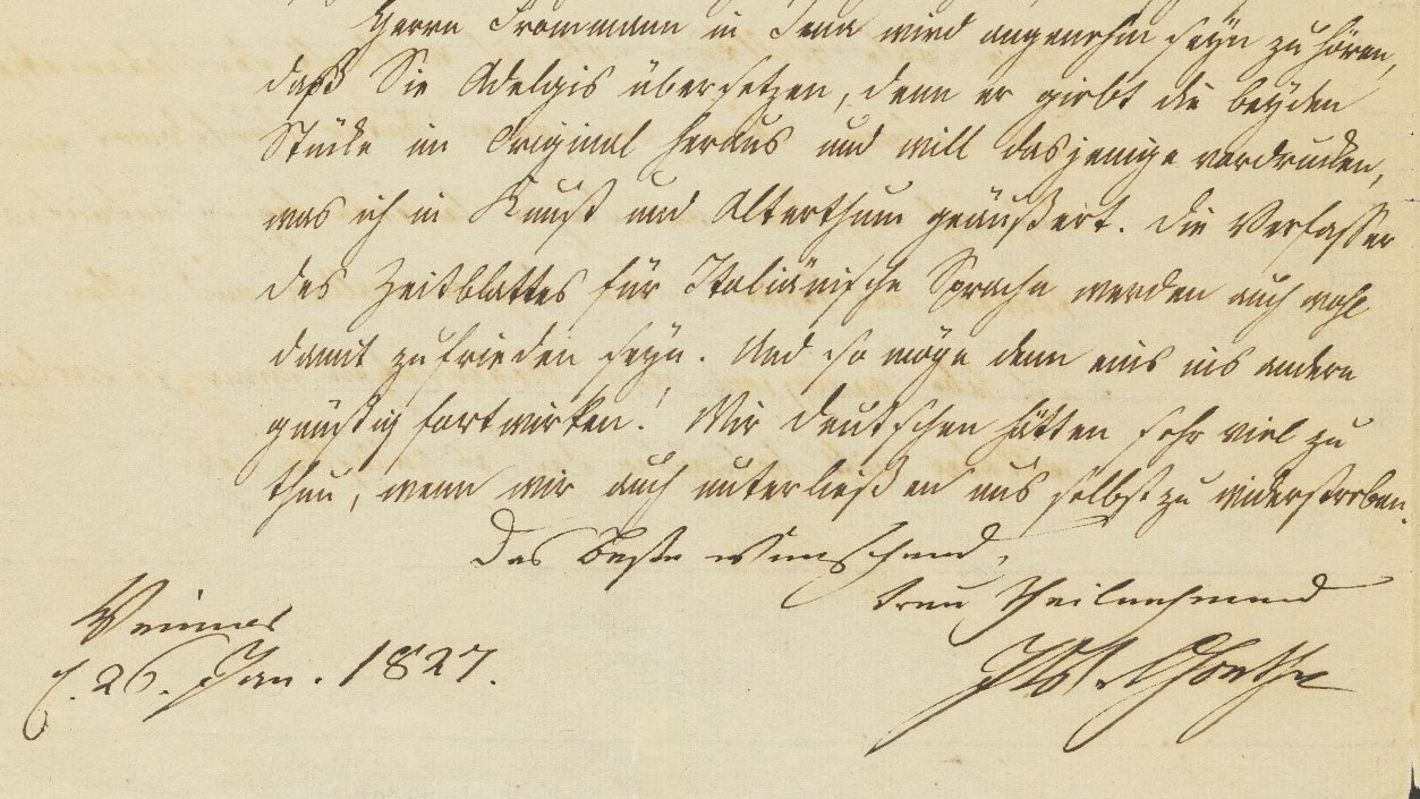 Herrn Frommann in Jena wird angenehm seyn zu hören,
daß Sie Adelgis übersetzen, denn er giebt die beyden
Stücke im Original heraus und will dasjenige vordrucken,
was ich in Kunst und Alterthum geäußert. Die Verfasser
des Zeitblattes für Italiänische Sprache werden auch wohl
damit zufrieden seyn. Und so möge denn eins ins andere
günstig fortwirken! Wir Deutschen hätten sehr viel zu
thun, wenn wir auch unterließen uns selbst zu widerstreben.
Das Beste wünschend,
treu theilnehmend
Weimar
d. 26. Jan. 1827.
JWvGoethe